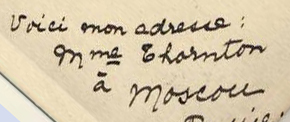 Voici mon adresse :
Mme Thornton
à Moscou